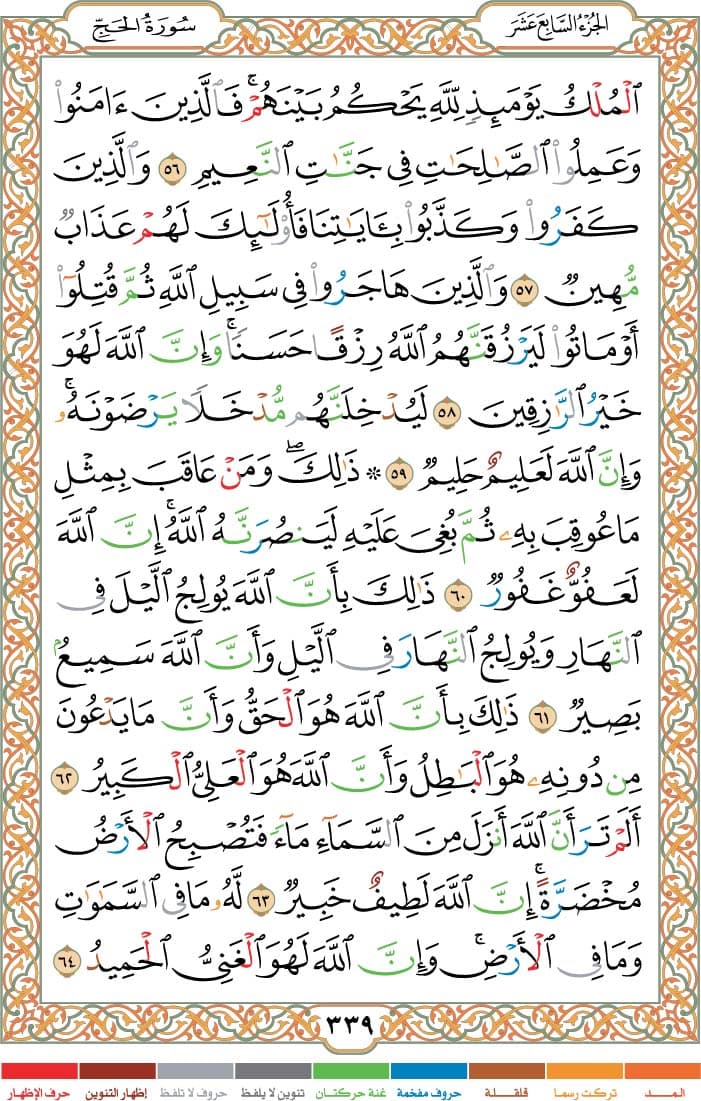 الجزء السابع عشر
سورة الحج
ٱلْمُلْكُ يَوْمَئِذٍ لِّلَّهِ يَحْكُمُ بَيْنَهُمْ ۚ فَٱلَّذِينَ ءَامَنُوا۟
وَعَمِلُوا۟ ٱلصَّـٰلِحَـٰتِ فِى جَنَّـٰتِ ٱلنَّعِيمِ ٥٦ وَٱلَّذِينَ
كَفَرُوا۟ وَكَذَّبُوا۟ بِـَٔايَـٰتِنَا فَأُو۟لَـٰٓئِكَ لَهُمْ عَذَابٌ
مُّهِينٌ ٥٧ وَٱلَّذِينَ هَاجَرُوا۟ فِى سَبِيلِ ٱللَّهِ ثُمَّ قُتِلُوٓا۟
أَوْ مَاتُوا۟ لَيَرْزُقَنَّهُمُ ٱللَّهُ رِزْقًا حَسَنًا ۚ وَإِنَّ ٱللَّهَ لَهُوَ
خَيْرُ ٱلرَّٰزِقِينَ ٥٨ لَيُدْخِلَنَّهُم مُّدْخَلًا يَرْضَوْنَهُۥ ۗ
وَإِنَّ ٱللَّهَ لَعَلِيمٌ حَلِيمٌ ٥٩ ۞ ذَٰلِكَ ۖ وَمَنْ عَاقَبَ بِمِثْلِ
مَا عُوقِبَ بِهِۦ ثُمَّ بُغِىَ عَلَيْهِ لَيَنصُرَنَّهُ ٱللَّهُ ۚ إِنَّ ٱللَّهَ
لَعَفُوٌّ غَفُورٌ ٦٠ ذَٰلِكَ بِأَنَّ ٱللَّهَ يُولِجُ ٱلَّيْلَ فِى
ٱلنَّهَارِ وَيُولِجُ ٱلنَّهَارَ فِى ٱلَّيْلِ وَأَنَّ ٱللَّهَ سَمِيعٌۢ
بَصِيرٌ ٦١ ذَٰلِكَ بِأَنَّ ٱللَّهَ هُوَ ٱلْحَقُّ وَأَنَّ مَا يَدْعُونَ
مِن دُونِهِۦ هُوَ ٱلْبَـٰطِلُ وَأَنَّ ٱللَّهَ هُوَ ٱلْعَلِىُّ ٱلْكَبِيرُ ٦٢
أَلَمْ تَرَ أَنَّ ٱللَّهَ أَنزَلَ مِنَ ٱلسَّمَآءِ مَآءً فَتُصْبِحُ ٱلْأَرْضُ
مُخْضَرَّةً ۗ إِنَّ ٱللَّهَ لَطِيفٌ خَبِيرٌ ٦٣ لَّهُۥ مَا فِى ٱلسَّمَـٰوَٰتِ
وَمَا فِى ٱلْأَرْضِ ۗ وَإِنَّ ٱللَّهَ لَهُوَ ٱلْغَنِىُّ ٱلْحَمِيدُ ٦٤
٣٣٩
المــد تركت رسما قلقــلة حروف مفخمة غنة حركتان تنوين لا يلفظ حروف لا تلفظ إظهار التنوين حرف الإظهار